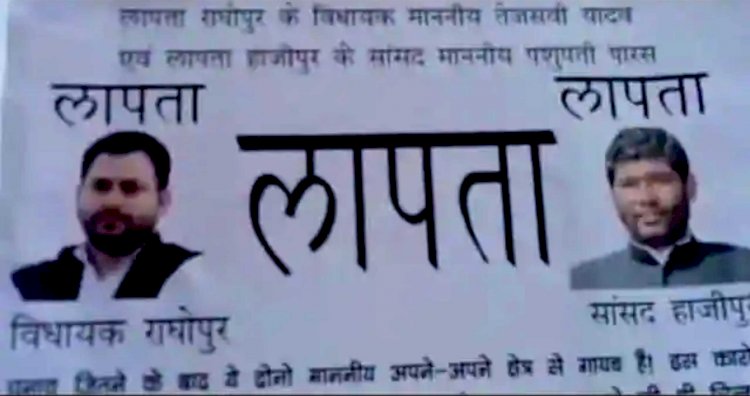 लापता राघोपुर के विधायक माननीय तेजसवी यादव
एवं लापता हाजीपुर के सांसद माननीय पशुपती पारस
लापता
लापता
लापता
विधायक राघोपुर
सांसद हाजीपु
चुनाव जितने के बाद ये दोनो माननीय अपने-अपने क्षेत्र से गायब है। इस